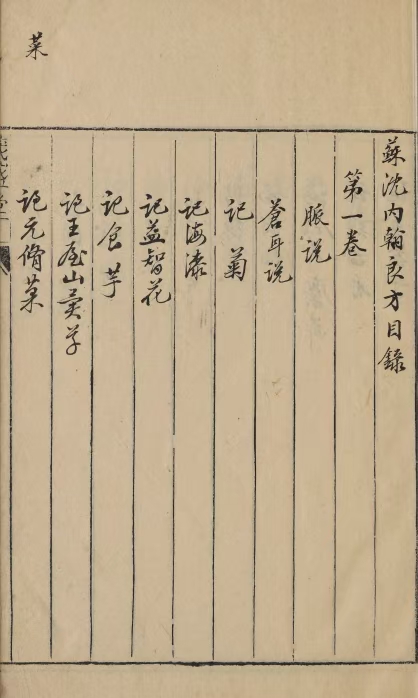 蘇沈内翰良方目録
第一卷
脈説
蒼耳説
記菊
記海漆
記益智花
記食芋
記王屋山異草
記元脩菜
菜